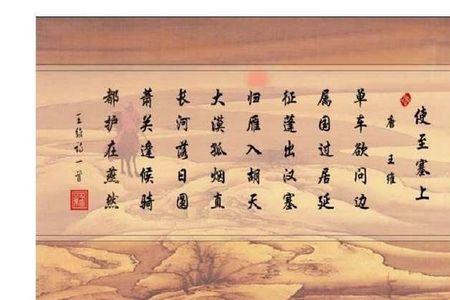 使至塞上
唐 王维
单车欲问边
属国过居延
征蓬出汉塞
归雁入胡天
大漠孤烟直
长河落日圆
萧关逢候骑
都护在燕然
王维诗一首